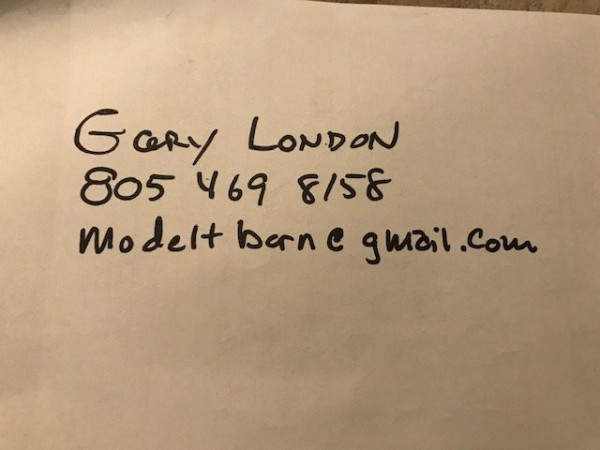 Gary London
805 469 8158
modelt barn@gmail.com